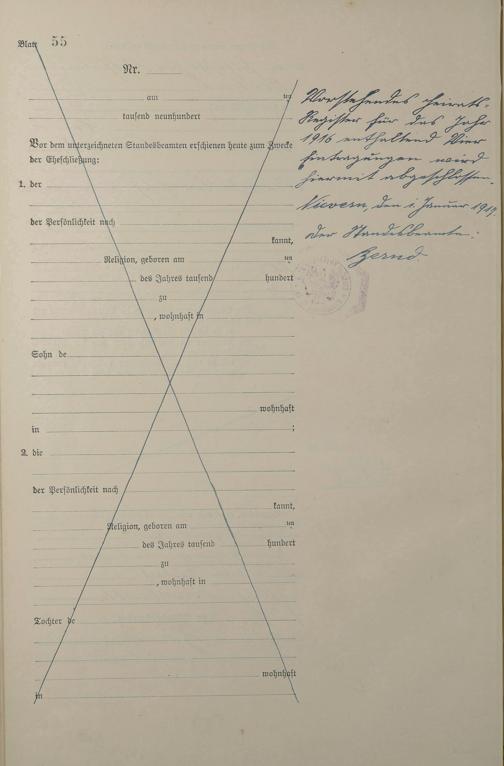 Blatt 55
Nr.
am ten
tausend neunhundert
Vor dem unterzeichneten Standesbeamten erschienen heute zum Zwecke
der Eheschließung:
1. der
der Persönlichkeit nach
kannt,
Religion, geboren am ten
des Jahres tausend hundert
zu
, wohnhaft in
Sohn de
wohnhaft
in ;
2. die
der Persönlichkeit nach
kannt,
Religion, geboren am ten
des Jahres tausend hundert
zu
, wohnhaft in
Tochter de
wohnhaft
in
Vorstehendes Heirats-
Register für das Jahr
1916 enthaltend Vier
Eintragungen wird
hiermit abgeschlossen.
Nievern, den 1. Januar 1917,
Der Standesbeamte: